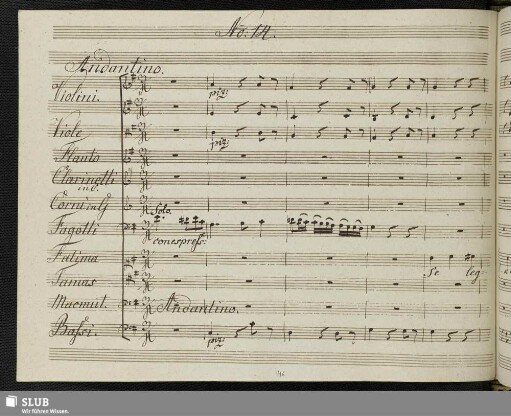 No: 14.
Andantino.
Violini.
piz:
Viole
piz:
Flauto
Clarinetti
in C.
Corni in G
Solo.
Fagotti
con espress:
Fatima
Se leg
Tamas
Macmut
Andantino.
Bassi.
piz:
SLUB
Wir führen Wissen.